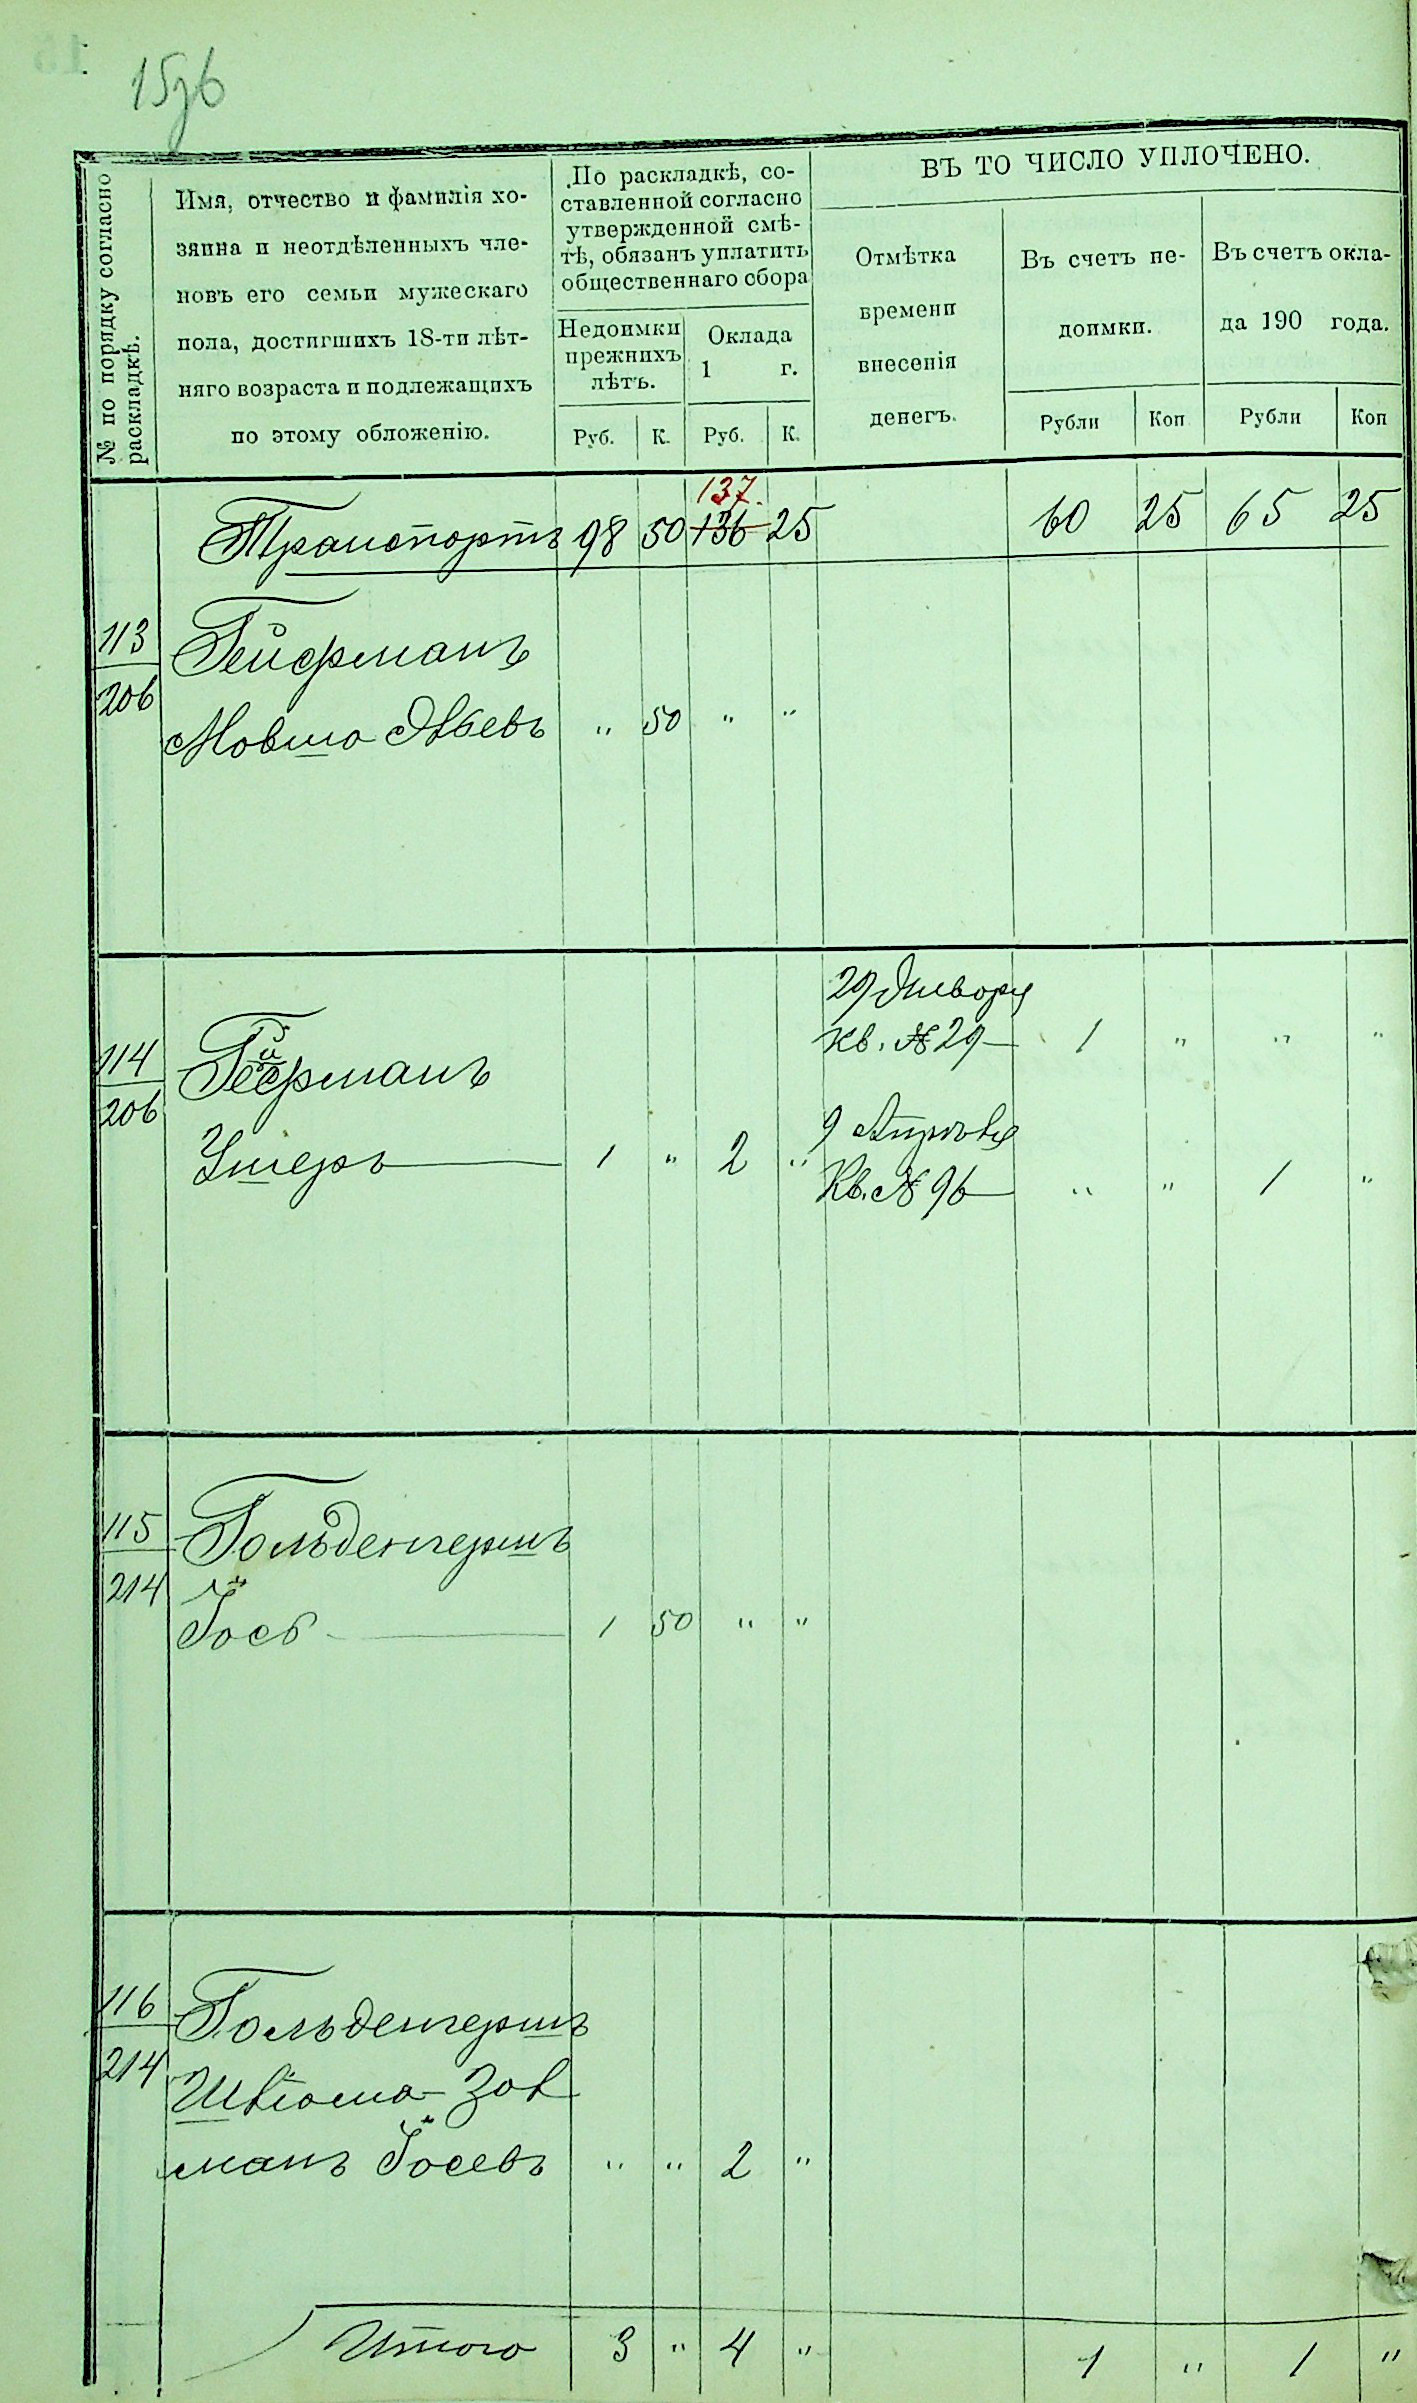 15 об
№ по порядку согласно
раскладкѣ.
Имя, отчество и фамилія хо-
зяина и неотдѣленныхъ чле-
новъ его семьи мужескаго
пола, достигшихъ 18-ти лѣт-
няго возраста и подлежащихъ
по этому обложенію.
По раскладкѣ, со-
ставленной согласно
утвержденной смѣ-
тѣ, обязанъ уплатить
общественнаго сбора
Недоимки
прежнихъ
лѣтъ.
Оклада
1 г.
Руб. К. Руб. К.
ВЪ ТО ЧИСЛО УПЛОЧЕНО.
Отмѣтка
времени
внесенія
денегъ.
Въ счетъ не-
доимки.
Въ счетъ окла-
да 190 года.
Рубли Коп Рубли Коп
137.
Транспортъ 98 50 136 25 60 25 65 25
113
206
Гейфманъ
Мовша " 50 " "
29 Января
Кв. № 29 1 " " "
114
206
Гейфманъ
9 Апрѣля
Ушеръ 1 " 2 "
Кв. № 96 " " 1 "
115
214
Гольденгершъ
Іось 1 50 " "
116
214
Гольденгершъ
Шліома-Зол
манъ Іосевъ " " 2 "
Итого 3 " 4 " 1 " 1 "